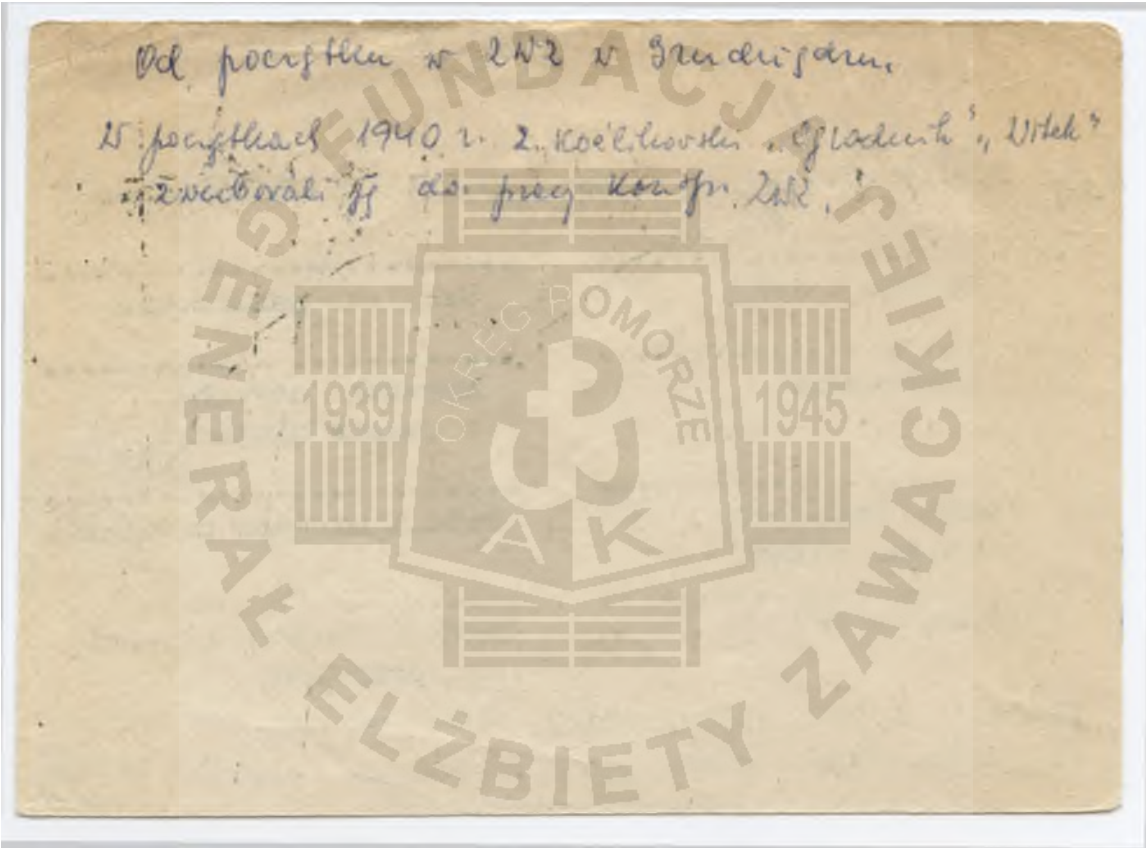 Od początku w ZWZ w Grudziądzu.
W początkach 1940 r. Z. Koźlikowski „Ogrodnik", „Witek"
zwerbowali ją do pracy konsp. ZWZ.
FUNDACJA
GENERAŁ ELŻBIETY ZAWACKIEJ
OKRĘG POMORZE
1939
1945
AK